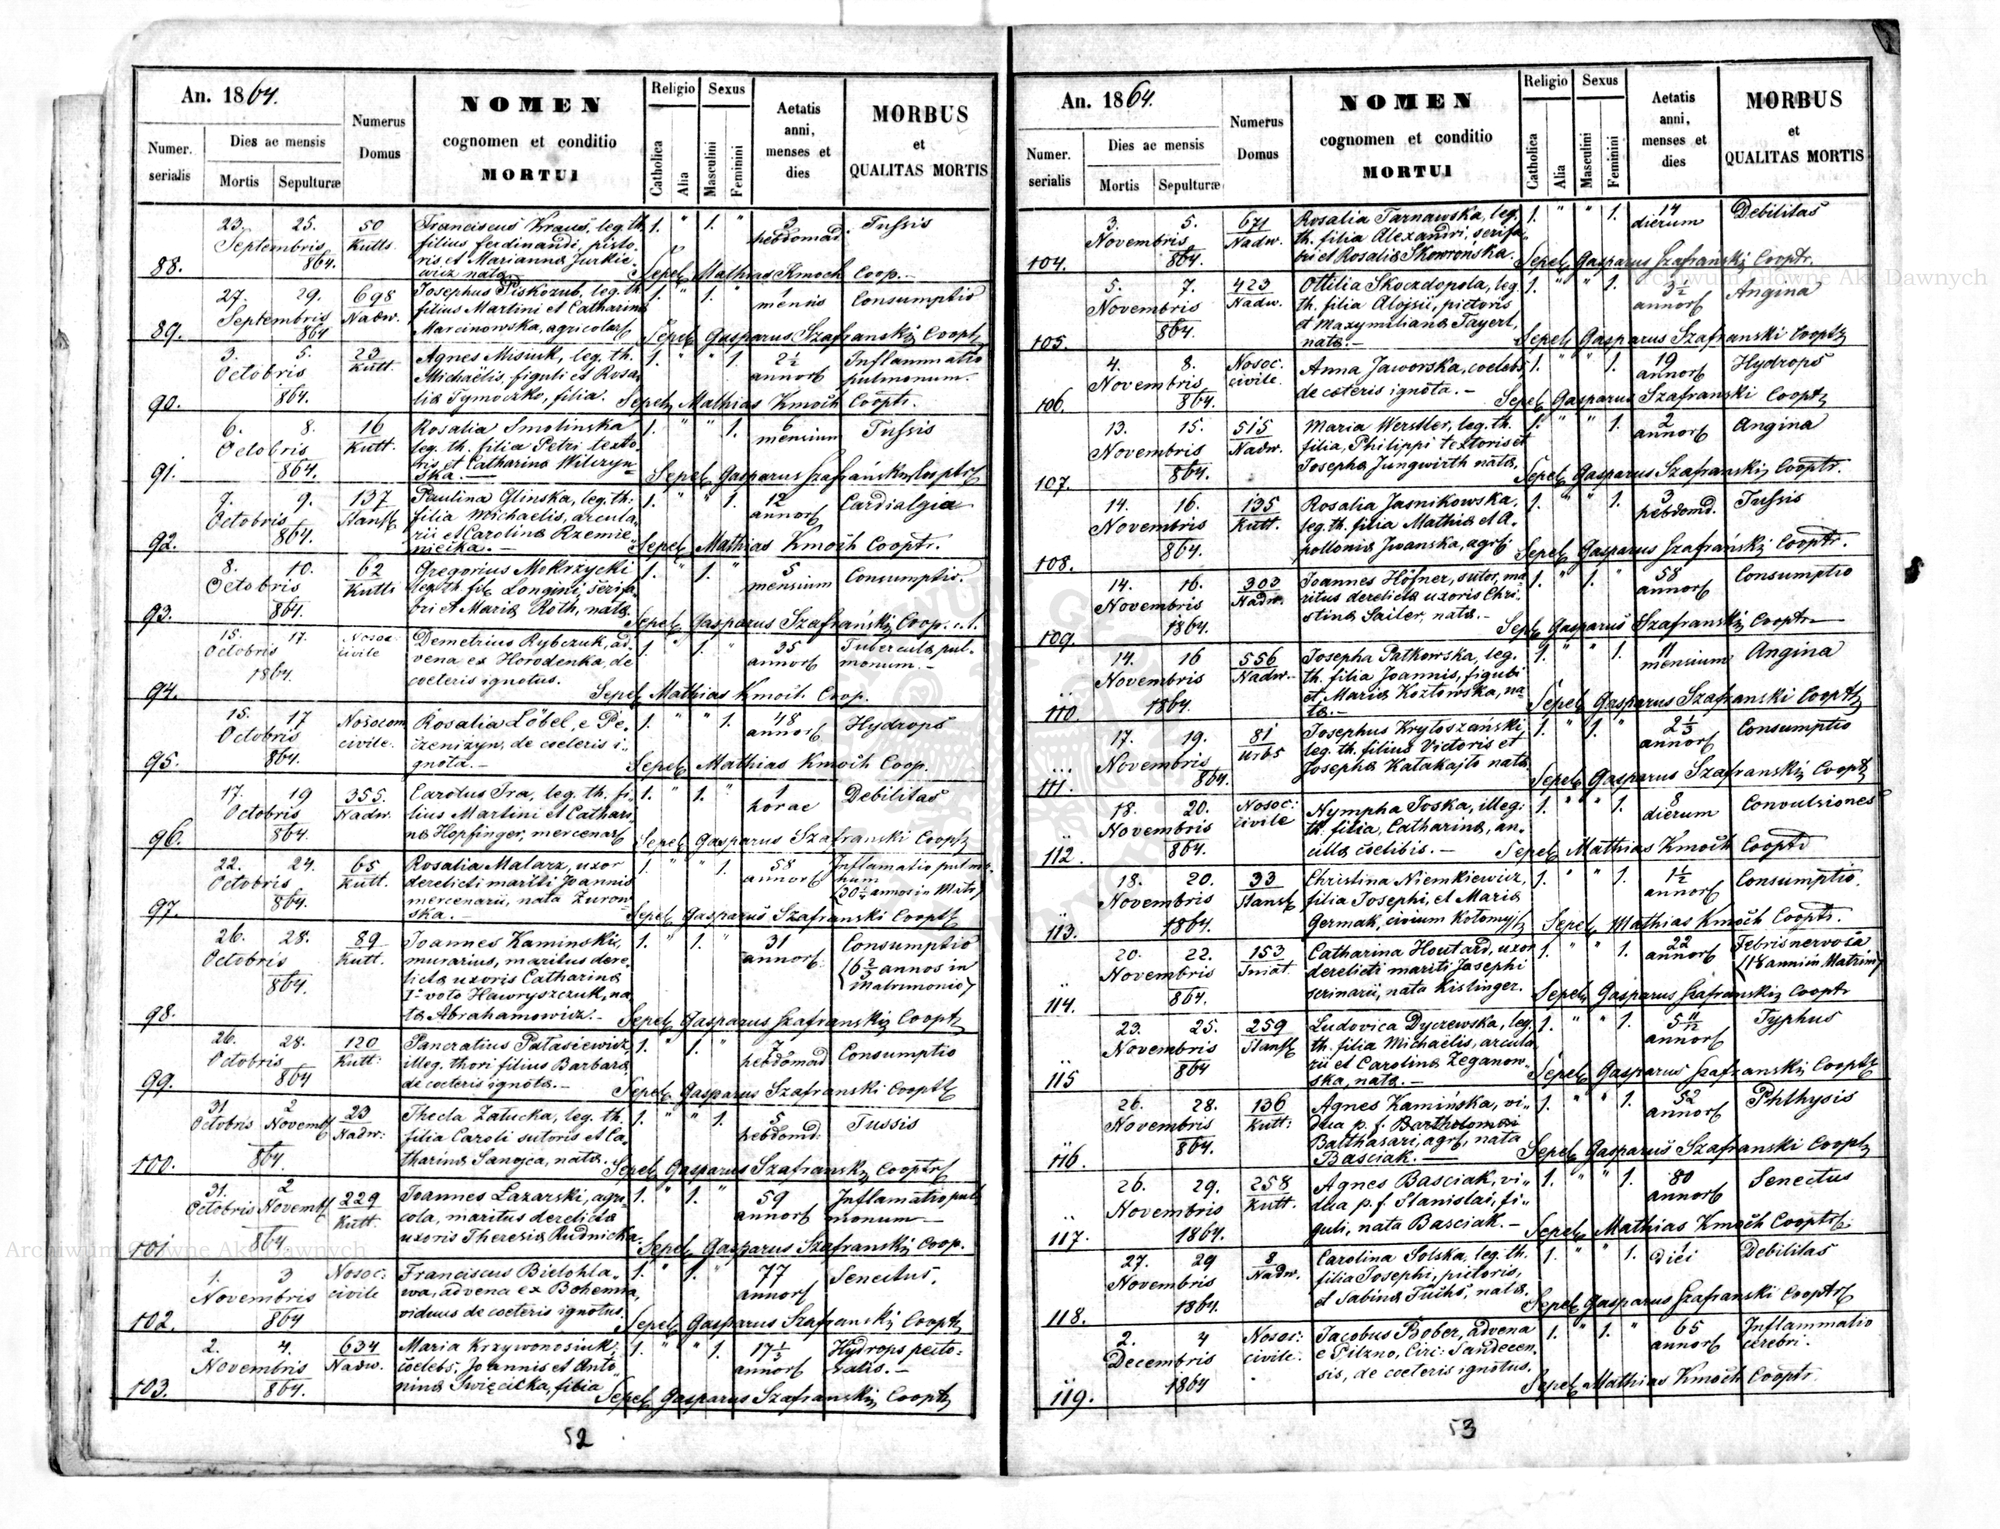 An. 1864.
Numer. serialis
Dies ac mensis
Mortis
Sepulturæ
Numerus Domus
NOMEN
cognomen et conditio
MORTUI
Religio
Catholica
Alia
Sexus
Masculini
Feminini
Aetatis anni, menses et dies
MORBUS
et
QUALITAS MORTIS
88. 23. 25. Septembris 864. 50 Kutts Franciscus Kraus, leg. th. 1. " 1. " 3 hebdomad. Tussis
filius ferdinandi, pisto-
ris et Marianna Jurkie-
wicz nata
Sepel. Mathias Kmoch Coop.
89. 27. 29. Septembris 864 698 Nadw. Josephus Piskozub, leg. th. 1. " 1. " 1 mensis Consumptio
filius Martini et Catharina
Marcinowska, agricolar
Sepel. Gasparus Szafranski Coopt
90. 3. 5. Octobris 864. 23 Kutt. Agnes Misiuk, leg. th. 1. " " 1. 2½ annor Inflammatio pulmonum.
Michaëlis, figuli et Rosa-
lia Tymoczko, filia.
Sepel. Mathias Kmoch Cooptr.
91. 6. 8. Octobris 864. 16 Kutt. Rosalia Smolinska 1. " " 1. 6 mensium Tussis
leg. th. filia Petri texto-
ris et Catharina Wilczyn-
ska.
Sepel. Gasparus Szafrański Cooptr
92. 7. 9. Octobris 864. 137 Stansl. Paulina Glinska, leg. th. 1. " " 1. 12 annor Cardialgia
filia Michaelis, arcula-
rii et Carolina Rzemie-
niecka.
Sepel. Mathias Kmoch Cooptr.
93. 8. 10. Octobris 864. 62 Kutts Gregorius Mokrzycki 1. " 1. " 5 mensium Consumptio.
leg. th. fil. Longini, serifa-
bri et Maria Roth, nata
Sepel. Gasparus Szafrański Coop.
94. 15. 17. Octobris 1864. Nosoc. civile Demetrius Rybczuk, ad- 1. " 1. " 25 annor Tubercula pul-
monum.
vena ex Horodenka, de
coeteris ignotus.
Sepel Mathias Kmoch Coop.
95. 15. 17 Octobris 864. Nosocom civile. Rosalia Löbel, e Pe- 1. " " 1. 48 annor Hydrops
czenizyn, de coeteris i-
gnota.
Sepel. Mathias Kmoch Coop.
96. 17. 19 Octobris 864. 355. Nadw. Carolus Tra, leg. th. fi- 1. " 1. " 1 horae Debilitas
lius Martini et Cathari-
na Hopfinger, mercenar
Sepel Gasparus Szafranski Coopt
97 22. 24. Octobris 864. 65 Kutt. Rosalia Malarz, uxor 1. " " 1. 58 annor Inflamatio pulmo-
num
(30½ annos in Matr)
derelicti mariti Joannis
mercenarii, nata Zurow-
ska.
Sepel Gasparus Szafranski Coopt
98. 26. 28. Octobris 864. 89 Kutt. Joannes Kaminski, 1. " 1. " 31 annor Consumptio
(6⅔ annos in
Matrimonio)
murarius, maritus dere-
licta uxoris Catharina
1° voto Hawryszczuk, na-
ta Abrahamowicz.
Sepel Gasparus Szafranski Coopt
99. 26. 28. Octobris 864 120 Kutt: Pancratius Patasiewicz, 1. " 1. " 7 hebdomad Consumptio
illeg. thori filius Barbara,
de coeteris ignota.
Sepel Gasparus Szafranski Coopt
100. 31 Octobris 2 Novemb 864. 23 Nadw: Thecla Zatucka, leg. th. 1. " " 1. 5 hebdomd: Tussis
filia Caroli sutoris et Ca-
tharina Sanojca, nata.
Sepel Gasparus Szafranski Cooptr
101 31. Octobris 2 Novemb 864 229 Kutt. Joannes Lazarski, agri- 1. " 1. " 59 annor Inflamatio pul
monum
cola, maritus derelicta
uxoris Theresia Rudnicka.
Sepel Gasparus Szafranski Coop.
102. 1. 3 Novembris 864 Nosoc: civile Franciscus Bielohla- 1. " 1. " 77 annor Senectus.
wa, advena ex Bohemia,
viduus de coeteris ignotus.
Sepel Gasparus Szafranski Coopt
103. 2. 4. Novembris 864. 634 Nadw. Maria Krzywonosiuk, 1. " " 1. 17⅓ annor Hydrops pecto-
ralis.
coelebs, Joannis et Anto-
nina Swięcicka, filia
Sepel Gasparus Szafranski Coopt
52
An. 1864.
Numer. serialis
Dies ac mensis
Mortis
Sepulturæ
Numerus Domus
NOMEN
cognomen et conditio
MORTUI
Religio
Catholica
Alia
Sexus
Masculini
Feminini
Aetatis anni, menses et dies
MORBUS
et
QUALITAS MORTIS
104. 3. 5. Novembris 864. 671 Nadw. Rosalia Tarnawska, leg. 1. " " 1. 14 dierum Debilitas
th. filia Alexandri, serifa-
bri et Rosalia Skowrońska.
Sepel Gasparus Szafrański Cooptr.
105. 5. 7. Novembris 864. 423 Nadw. Ottilia Skoczdopola, leg. 1. " " 1. 3½ annor Angina
th. filia Alojsii, pictoris
et Maxymiliana Tayerl,
nata.
Sepel Gasparus Szafranski Coopt
106. 4. 8. Novembris 864. Nosoc. civile. Anna Jaworska, coelebs 1. " " 1. 19 annor Hydrops
de coeteris ignota.
Sepel Gasparus Szafranski Coopt
107. 13. 15. Novembris 864. 515 Nadw. Maria Werstler, leg. th. 1. " " 1. 2 annor Angina
filia, Philippi textoris et
Josepha Jungwirth nata,
Sepel Gasparus Szafranski Cooptr.
108. 14. 16. Novembris 864. 135 Kutt. Rosalia Jasnikowska, 1. " " 1. 3 hebdomd. Tussis
leg. th. filia Mathia et A-
pollonia Iwanska, agr
Sepel Gasparus Szafrański Cooptr.
109. 14. 16. Novembris 1864. 303 Nadw. Joannes Höfner, sutor, ma- 1. " 1. " 58 annor Consumptio
ritus derelicta uxoris Chri-
stina Sailer, nata.
Sepel Gasparus Szafranski Cooptr
110. 14. 16 Novembris 1864. 556 Nadw. Josepha Patkowska, leg. 1. " " 1. 11 mensium Angina
th. filia Joannis, figuli
et Maria Kozłowska, na-
ta.
Sepel Gasparus Szafranski Coopt
111. 17. 19. Novembris 864. 81 Urbs Josephus Krytoszański, 1. " 1. " 2⅓ annor Consumptio
leg. th. filius Victoris et
Josepha Katakajło nata
Sepel Gasparus Szafranski Coopt
112. 18. 20. Novembris 864. Nosoc: civile Nympha Toska, illeg: 1. " " 1. 8 dierum Convulsiones
th. filia, Catharina, an-
cilla coelibis.
Sepel Mathias Kmoch Coopt
113. 18. 20. Novembris 1864. 33 Stansl Christina Niemkiewicz, 1. " " 1. 1½ annor Consumptio.
filia Josephi, et Maria
Germak, civium Kołomyj
Sepel Mathias Kmoch Cooptr.
114. 20. 22. Novembris 864. 153 Sniat. Catharina Houtard, uxor 1. " " 1. 22 annor Febris nervosa
(1⅓ anni in Matrim)
derelicti mariti Josephi
serinarii, nata Kislinger.
Sepel Gasparus Szafranski Cooptr
115 23. 25. Novembris 864 259 Stansl Ludovica Dyczewska, leg. 1. " " 1. 5 11/12 annor Typhus
th. filia Michaelis, arcula-
rii et Carolina Zeganow-
ska, nata.
Sepel Gasparus Szafranski Coopt
116. 26. 28. Novembris 864. 136 Kutt: Agnes Kamińska, vi- 1. " " 1. 52 annor Phthysis
dua p. f. Bartholomæi
Balthasari, agr, nata
Basciak.
Sepel Gasparus Szafranski Coopt
117. 26. 29. Novembris 1864. 258 Kutt. Agnes Basciak, vi- 1. " " 1. 80 annor Senectus
dua p. f. Stanislai, fi-
guli, nata Basciak.
Sepel Mathias Kmoch Cooptr
118. 27. 29 Novembris 1864. 8 Nadw. Carolina Solska, leg. th. 1. " " 1. 1 diei Debilitas
filia Josephi, pictoris,
et Sabina Fuchs, nata.
Sepel Gasparus Szafranski Cooptr
119. 2. 4 Decembris 1864 Nosoc: civile. Jacobus Bober, advena 1. " 1. " 65 annor Inflammatio
cerebri.
e Pilzno, Circ: Sandecen-
sis, de coeteris ignotus.
Sepel Mathias Kmoch Cooptr.
53
Archiwum Główne Akt Dawnych
Archiwum Główne Akt Dawnych